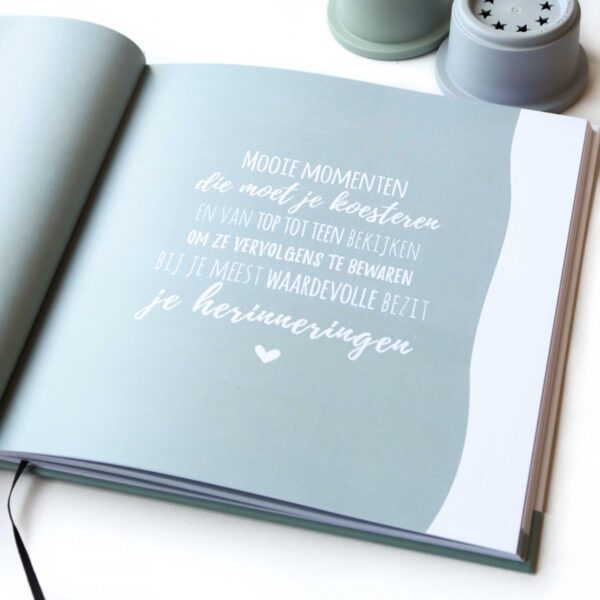 MOOIE MOMENTEN
die moet je koesteren
EN VAN TOP TOT TEEN BEKIJKEN
OM ZE VERVOLGENS TE BEWAREN
BIJ JE MEEST WAARDEVOLLE BEZIT
je herinneringen